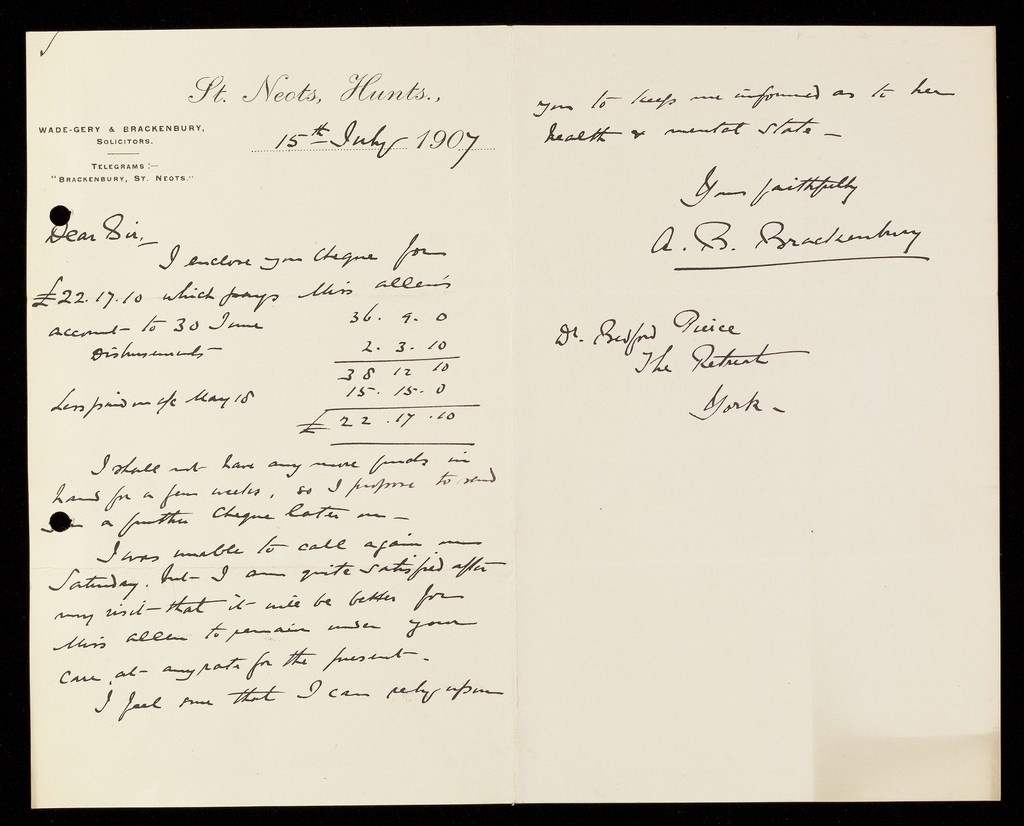 St. Neots, Hunts.,
WADE-GERY & BRACKENBURY,
SOLICITORS.
TELEGRAMS:-
"BRACKENBURY, ST. NEOTS."
15th July 1907
Dear Sir,
I enclose you cheque for
£22.17.10 which pays Miss Allen's
account to 30 June 36. 9. 0
Disbursements 2. 3. 10
38 12 10
Less paid on a/c May 18 15. 15. 0
£ 22. 17. 10
I shall not have any more funds in
hand for a few weeks, so I propose to send
you a further cheque later on -
I was unable to call again on
Saturday, but I am quite satisfied after
my visit that it will be better for
Miss Allen to remain under your
care, at any rate for the present.
I feel sure that I can rely upon
you to keep me informed as to her
health & mental state -
Yours faithfully
A. B. Brackenbury
Dr. Bedford Pierce
The Retreat
York -